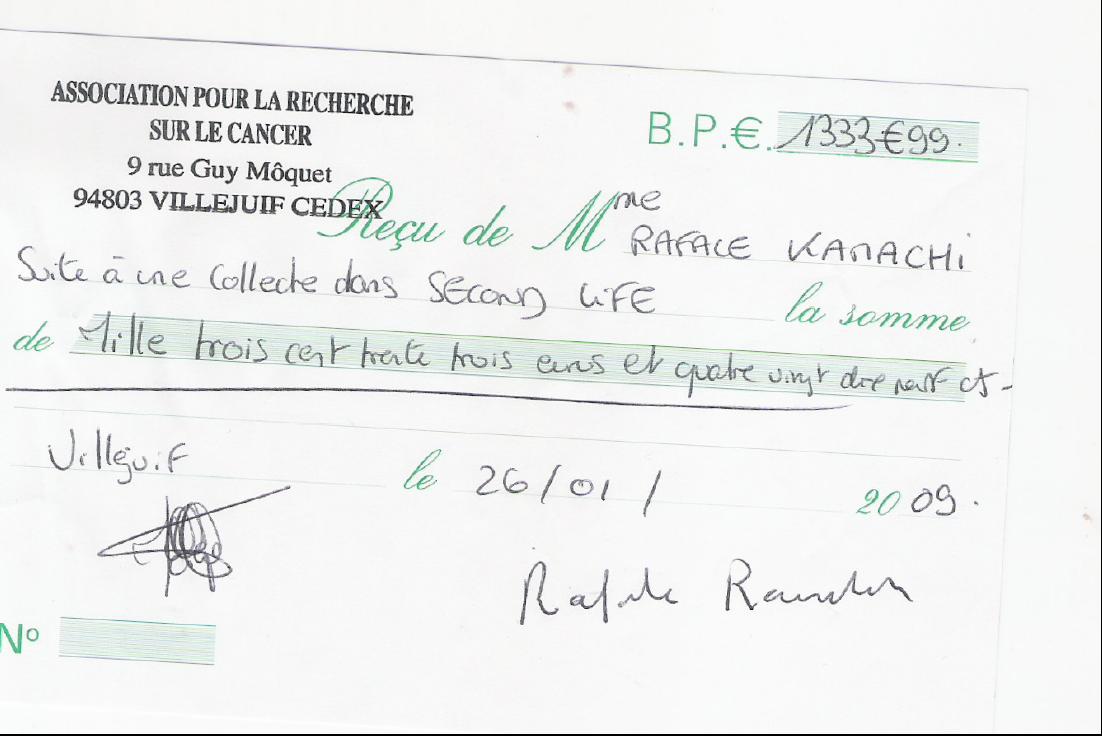 ASSOCIATION POUR LA RECHERCHE
SUR LE CANCER
9 rue Guy Môquet
94803 VILLEJUIF CEDEX
B.P.€. 1333€99.
Reçu de Mme RAFALE KAMACHI
Suite à une collecte dans SECOND LIFE la somme
de Mille trois cent trente trois euros et quatre vingt dix neuf cts
Villejuif le 26/01/ 2009.
No